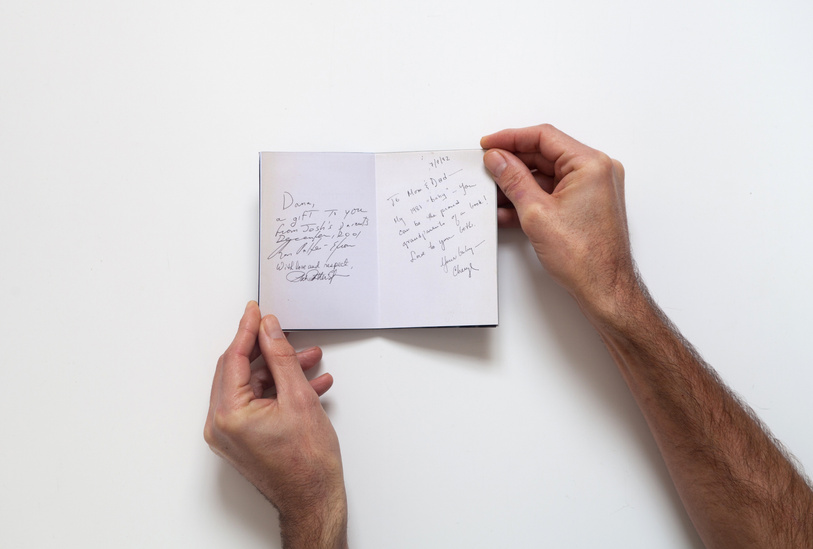 Dana,
a gift to you
from Josh's parents
December, 2001
With love and respect,
3/8/92
To Mom & Dad—
My 1st "baby" - you
can be the proud
grandparents of a book!
Love to you both
Your baby—
Cheryl